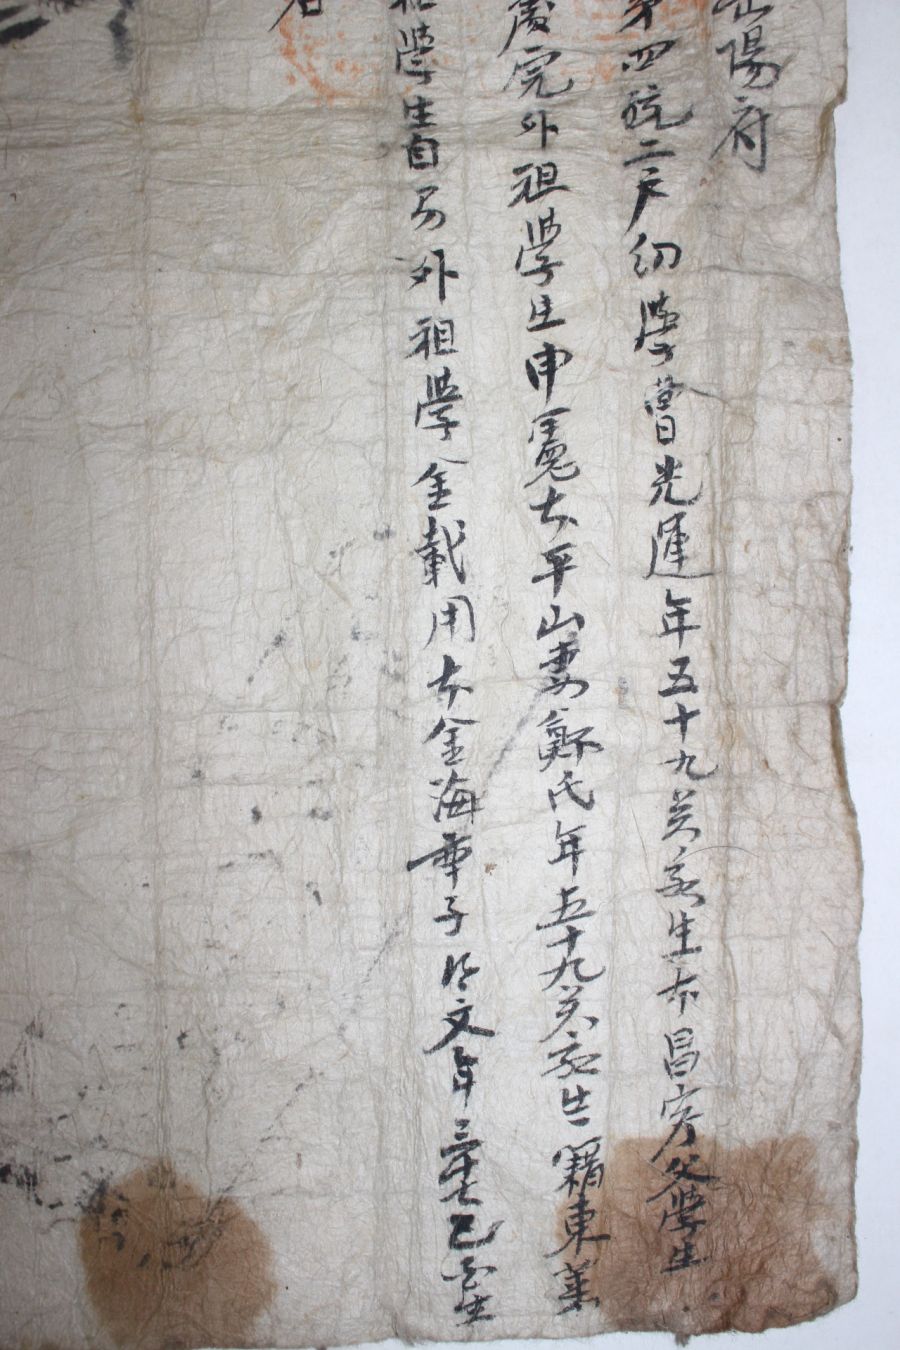 陽府
第四統二戶幼學曺光運年五十九癸亥生本昌寧父學生
處完外祖學生申冕本平山妻鄭氏年五十九癸亥生籍東萊
祖學生自 外祖學金載用本金海率子 文年三十七乙酉生